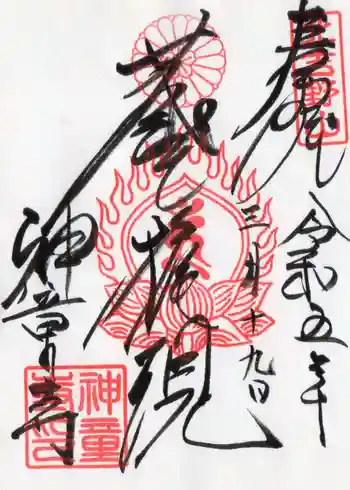 奉拝
令和五年
三月十九日
蔵王権現
神童寺
神童
寺印